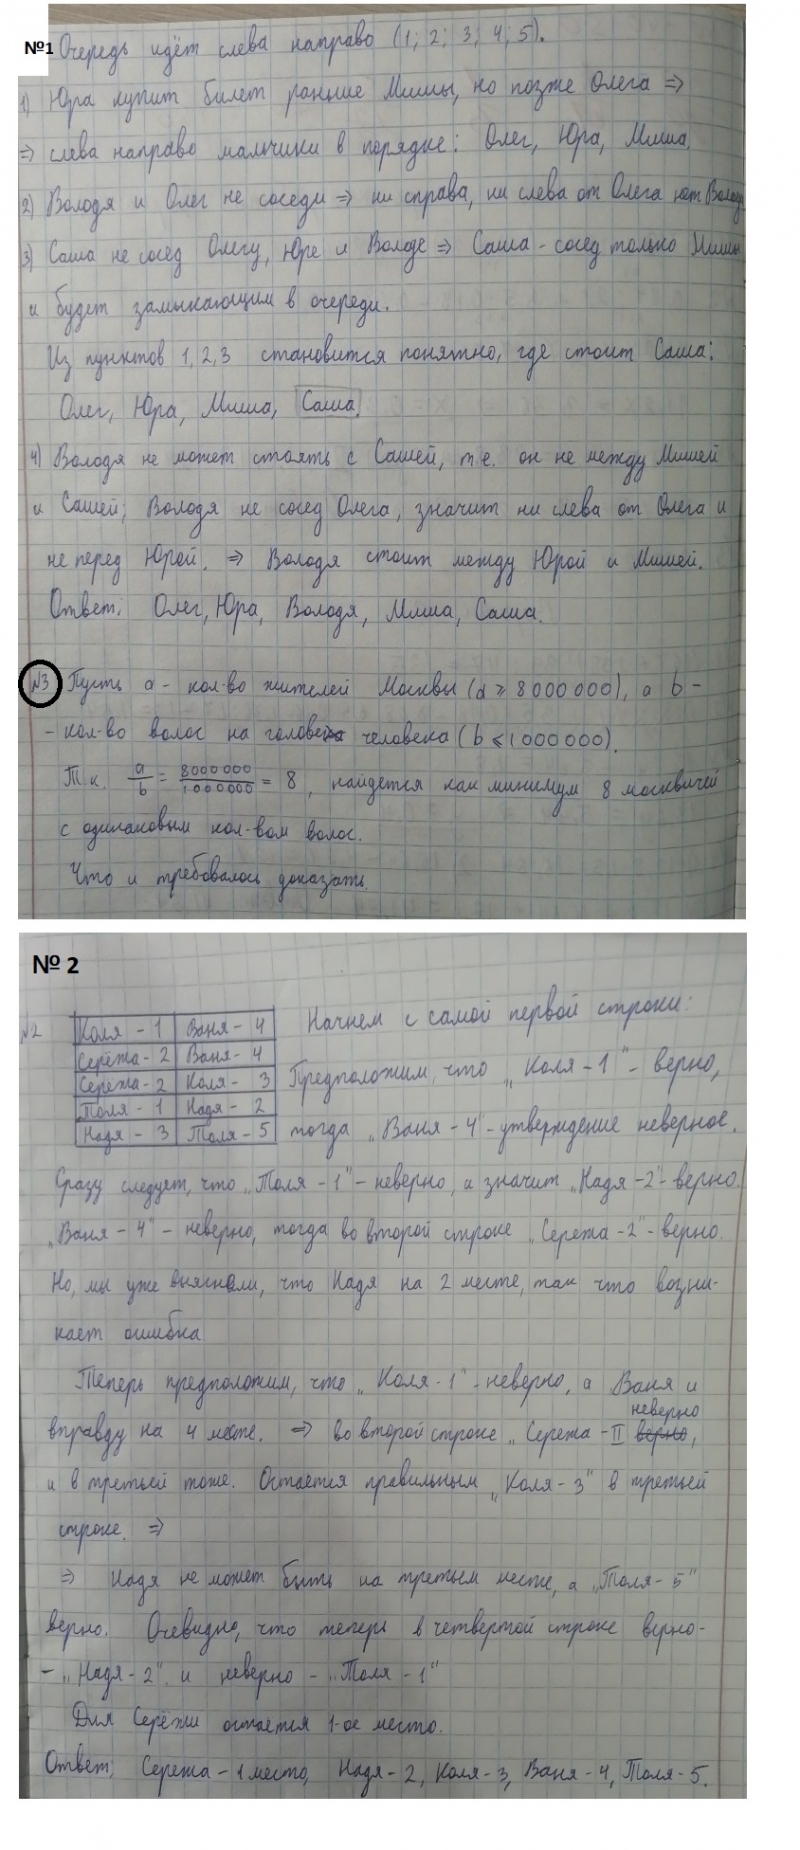 №1 Очередь идёт слева направо (1; 2; 3; 4; 5).
1) Юра купит билет раньше Миши, но позже Олега ⇒
⇒ слева направо мальчики в порядке: Олег, Юра, Миша.
2) Володя и Олег не соседи ⇒ ни справа, ни слева от Олега нет Володи
3) Саша не сосед Олегу, Юре и Володе ⇒ Саша - сосед только Миши
и будет замыкающим в очереди.
Из пунктов 1, 2, 3 становится понятно, где стоит Саша:
Олег, Юра, Миша, Саша.
4) Володя не может стоять с Сашей, т.е. он не между Мишей
и Сашей; Володя не сосед Олега, значит ни слева от Олега и
не перед Юрой. ⇒ Володя стоит между Юрой и Мишей.
Ответ: Олег, Юра, Володя, Миша, Саша.
№3 Пусть a - кол-во жителей Москвы (a ⩾ 8 000 000), а b -
- кол-во волос на голове человека (b ⩽ 1 000 000).
Т.к. a/b = 8000 000/1 000000 = 8, найдется как минимум 8 москвичей
с одинаковым кол-вом волос.
Что и требовалось доказать.
№ 2
№2 Коля - 1 Ваня - 4 Начнем с самой первой строки:
Серёжа - 2 Ваня - 4
Серёжа - 2 Коля - 3 Предположим, что „Коля - 1" - верно,
Толя - 1 Надя - 2
Надя - 3 Толя - 5 тогда „Ваня - 4" - утверждение неверное.
Сразу следует, что „Толя - 1" - неверно, а значит „Надя - 2" - верно.
„Ваня - 4" - неверно, тогда во второй строке „Сережа - 2" - верно.
Но, мы уже выяснили, что Надя на 2 месте, так что возни-
кает ошибка
Теперь предположим, что „Коля - 1" - неверно, а Ваня и
вправду на 4 месте. ⇒ во второй строке „Сережа - II верно неверно,
и в третьей тоже. Остается правильным „Коля - 3" в третьей
строке. ⇒
⇒ Надя не может быть на третьем месте, а „Толя - 5"
верно. Очевидно, что теперь в четвертой строке верно -
- „Надя - 2" и неверно - „Толя - 1"
Для Серёжи остается 1-ое место.
Ответ: Сережа - 1 место, Надя - 2, Коля - 3, Ваня - 4, Толя - 5.